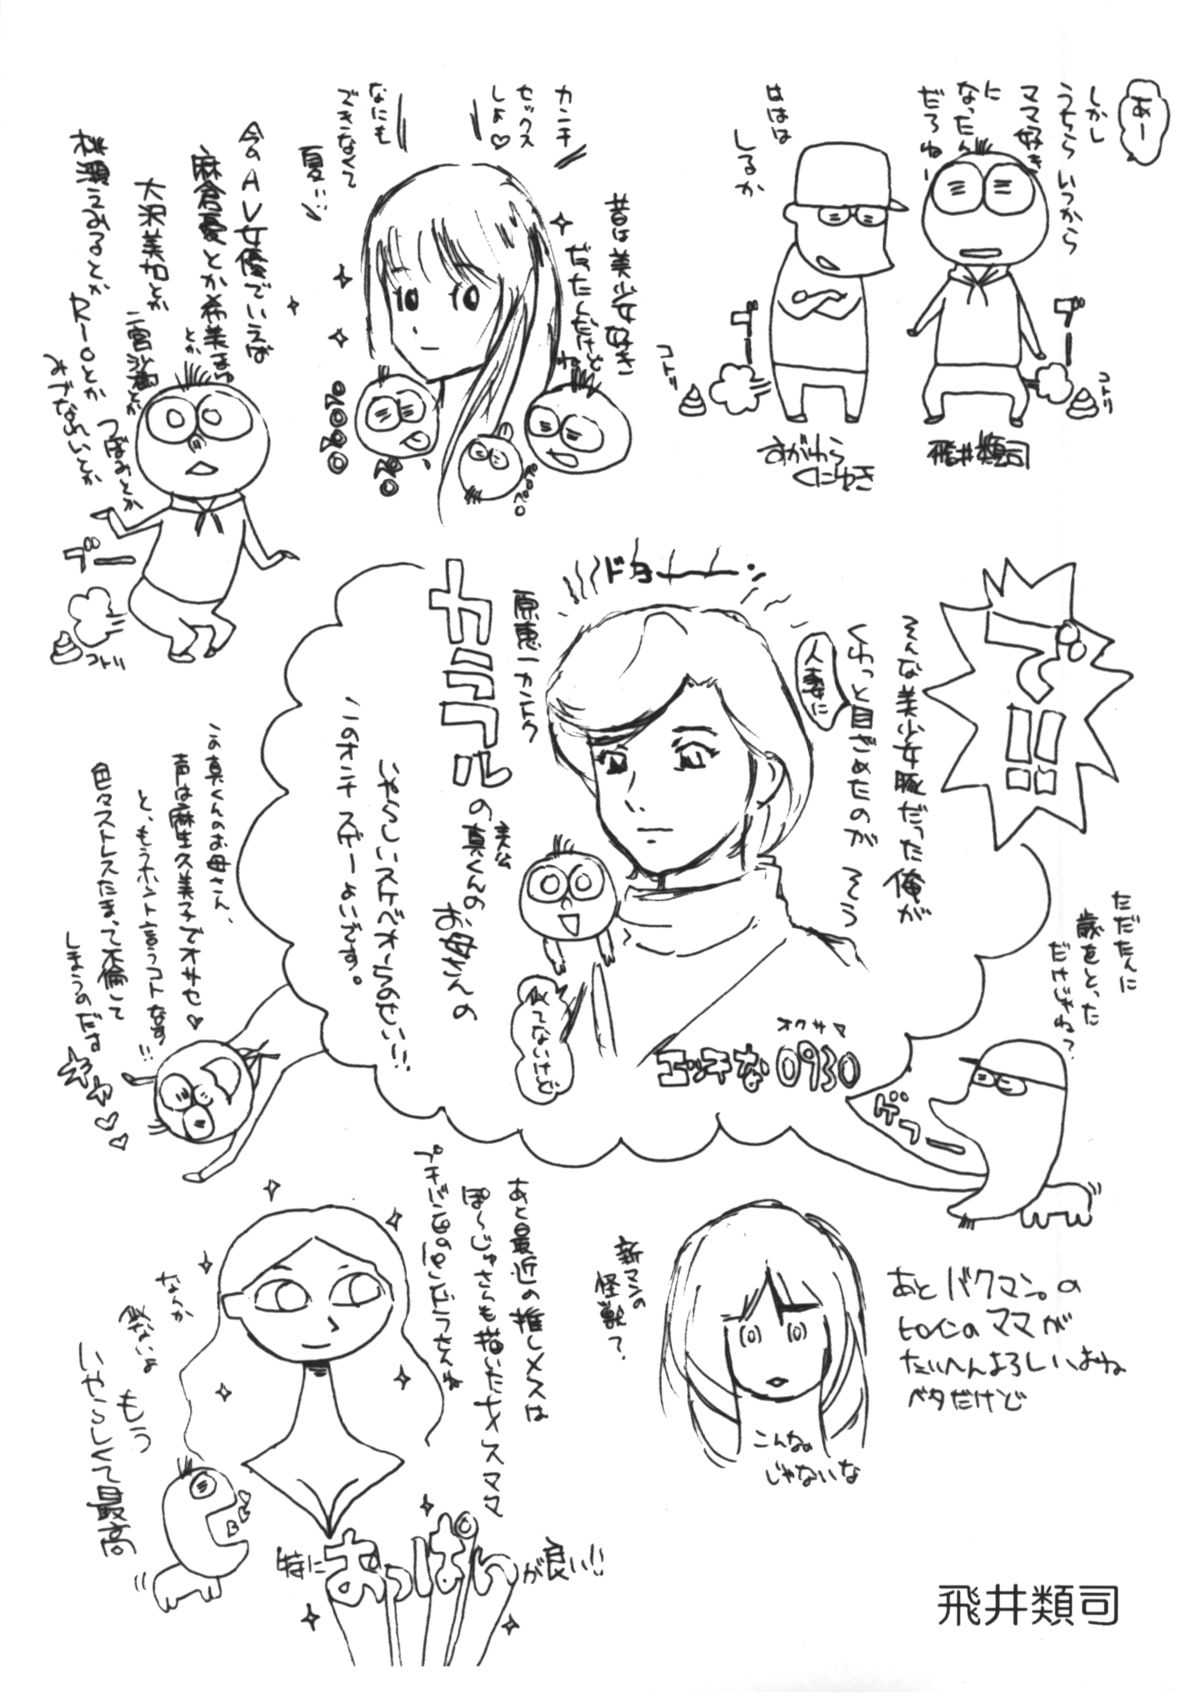 あー
しかし
うちらいつから
ママ好き
に
なったん
だろねー
ははは
しるか
ブー
コトリ
ブー
コトリ
飛井類司
すがわら
くにゆき
カンチ
セックス
しよ♡
なにも
できなくて
夏!!
昔は美少女好き
だったんだけど
ね
ペロペロ
今のAV女優でいえば
麻倉憂とか希美まゆ
とか
大沢美加とか
二宮沙樹とか
つぼみとか
桃瀬えみるとか
Rioとか
みづなれいとか
ブー
コトリ
で!!
そんな美少女豚だった俺が
人妻に
くわっと目ざめたのが そう
ドヨーーン
原恵一カントク
カラフルの
主人公
真くんの
お母さんの
いやらしいスケベオーラのせい!!
このオンナ スゲーよいです。
似てないけど
オクサマ
エッチな0930
ただたんに
歳をとった
だけじゃね?
ゲフー
この真くんのお母さん、
声は麻生久美子でオサセ♡
と、もうホント言うコトなす!!
色々ストレスたまって不倫して
しまうのだす
キャ♡♡
あと最近の推しメスは
ぽ〜じゅさらも描いたメスママ
なんか
似ないよ
もう
いやらしくて最高
特におっぱいが良い!!
新マンの
怪獣?
こんなの
じゃないな
あとバクマン。の
ヒロインのママが
たいへんよろしいよね
ベタだけど
飛井類司